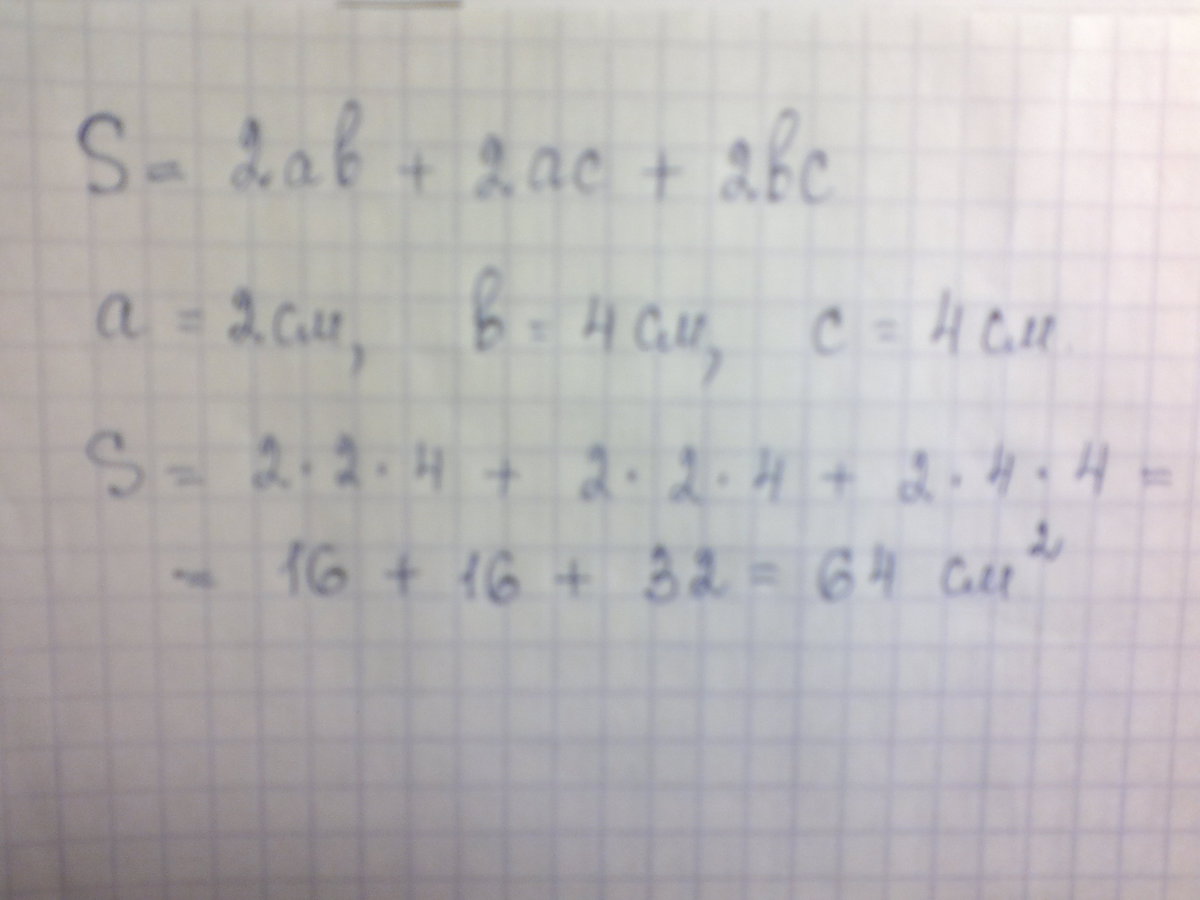 S = 2ab + 2ac + 2bc
a = 2 см, b = 4 см, c = 4 см.
S = 2·2·4 + 2·2·4 + 2·4·4 =
= 16 + 16 + 32 = 64 см²